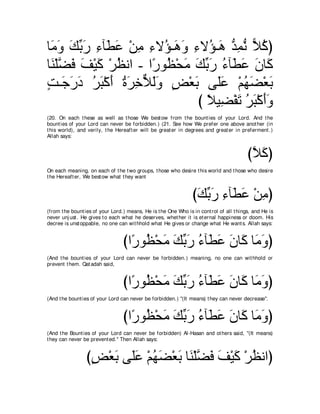 (كُلاًّ نُّمِدُّ هَـؤُلاءِ وَهَـؤُلاءِ مِنْ عَطَآءِ رَبِّكَ وَمَا
كَانَ عَطَآءُ رَبِّكَ مَحْظُورًا - انظُرْ كَيْفَ فَضَّلْنَا
بَعْضَهُمْ عَلَى بَعْضٍ وَلَلاٌّخِرَةُ أَكْبَرُ دَرَجَـتٍ
وَأَكْبَرُ تَفْضِيلاً )
(20. On each these as well as those We bestow from the bounties of your Lord. And the
bounties of your Lord can never be forbidden.) (21. See how We prefer one above another (in
this world), and verily, the Hereafter will be greater in degrees and greater in preferment.)
Allah says:
(كُلاًّ)
On each meaning, on each of the two groups, those who desire this world and those who desire
the Hereafter, We bestow what they want
(مِنْ عَطَآءِ رَبِّكَ)
(from the bounties of your Lord.) means, He is the One Who is in control of all things, and He is
never unjust. He gives to each what he deserves, whether it is eternal happiness or doom. His
decree is unstoppable, no one can withhold what He gives or change what He wants. Allah says:
(وَمَا كَانَ عَطَآءُ رَبِّكَ مَحْظُورًا)
(And the bounties of your Lord can never be forbidden.) meaning, no one can withhold or
prevent them. Qatadah said,
(وَمَا كَانَ عَطَآءُ رَبِّكَ مَحْظُورًا)
(And the bounties of your Lord can never be forbidden.) "(It means) they can never decrease".
(وَمَا كَانَ عَطَآءُ رَبِّكَ مَحْظُورًا)
(And the Bounties of your Lord can never be forbidden) Al-Hasan and others said, "(It means)
they can never be prevented." Then Allah says:
(انظُرْ كَيْفَ فَضَّلْنَا بَعْضَهُمْ عَلَى بَعْضٍ)